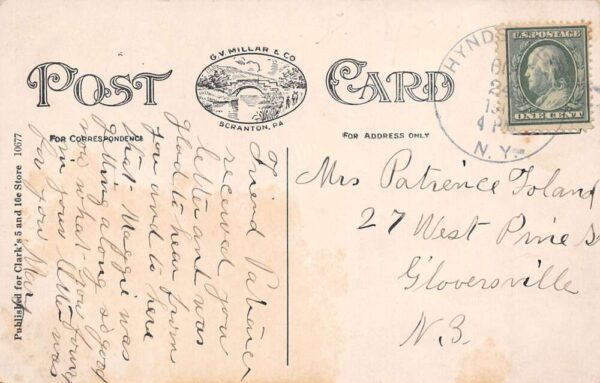 POST CARD
G.V. MILLAR & CO
SCRANTON, PA
FOR CORRESPONDENCE
FOR ADDRESS ONLY
Published for Clark's 5 and 10c Store 10677
HYNDS
4 P
N.Y.
U.S. POSTAGE
ONE CENT
Friend Patince
received you
letter and was
glad to hear from
you and to here
that Maggie was
getting along so good
now what you
in your letter was
for you
Mrs Patience Toland
27 West Pine S
Gloversville
N.Y.